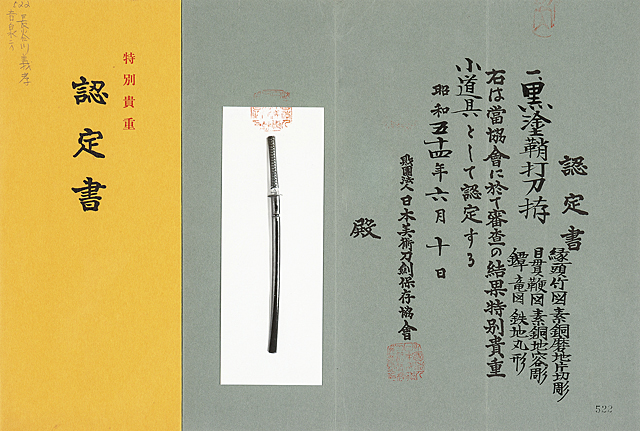 特別貴重
認定書
522
長谷川義孝
認定書
一黒塗鞘打刀拵
縁頭竹図素銅磨地片切彫
目貫鞭図素銅地容彫
鐔竜図鉄地丸形
右は當協會に於て審査の結果特別貴重
小道具として認定する
昭和五十四年六月十日
財團法人日本美術刀劍保存協會
殿
522